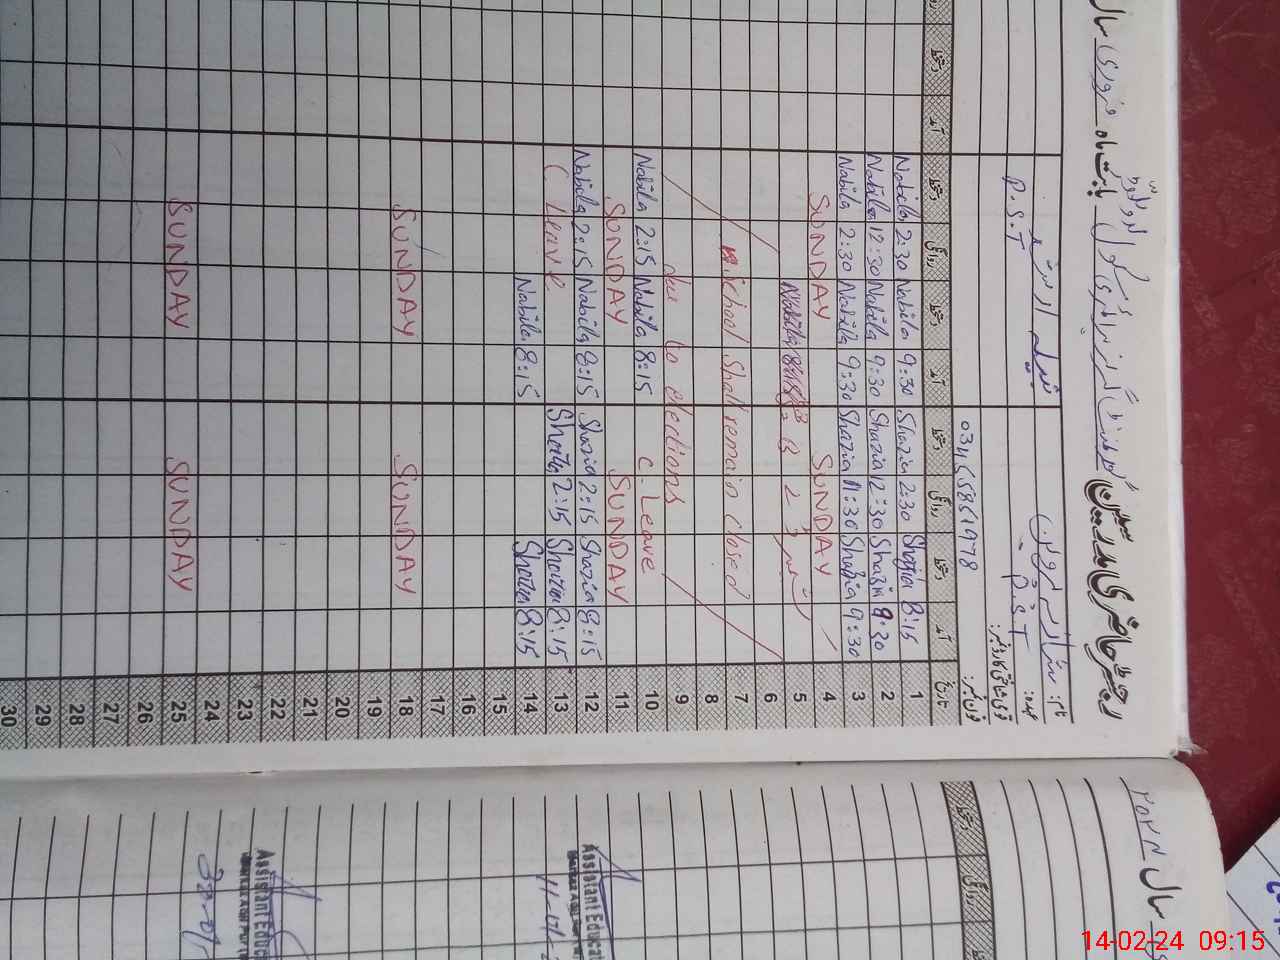 رجسٹر حاضری مدرسین گورنمنٹ گرلز پرائمری سکول بابت ماہ فروری سال
نام: شازیہ پروین
عہدہ: P.S.T
قومی شناختی کارڈ نمبر:
فون نمبر: 03455851978
نبیلہ ارشد
P.S.T
تاریخ آمد دستخط روانگی دستخط آمد دستخط روانگی دستخط آمد دستخط
1 8:15 Shazia 2:30 Shazia 9:30 Nabila 2:30 Nabila
2 9:30 Shazia 12:30 Shazia 9:30 Nabila 12:30 Nabila
3 9:30 Shazia 11:30 Shazia 9:30 Nabila 2:30 Nabila
4 SUNDAY SUNDAY
5
6
7 School Shall remain closed
8
9 due to elections
10 C. Leave 8:15 Nabila 2:15 Nabila
11 SUNDAY SUNDAY
12 8:15 Shazia 2:15 Shazia 8:15 Nabila 2:15 Nabila
13 8:15 Shazia 2:15 Shazia C Leave
14 8:15 Shazia 8:15 Nabila
15
16
17
18 SUNDAY SUNDAY
19
20
21
22
23
24
25 SUNDAY SUNDAY
26
27
28
29
30
سال ۲۰۲۴
دستخط روانگی دستخط
Assistant Educat
11-01-2
Assistant Educ
14-02-24 09:15